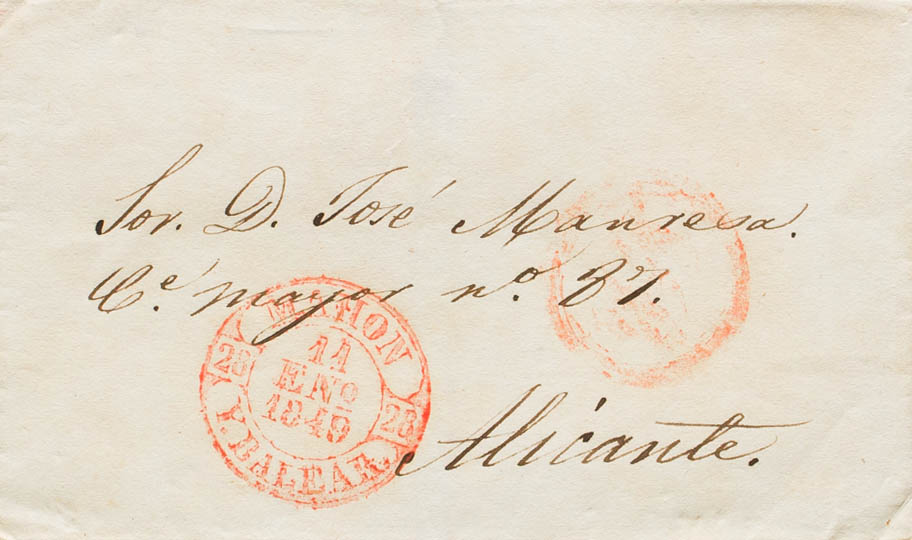 Sor. D. José Manresa.
Ce. mayor no. 37.
Alicante.
MAHON
28 11 28
ENO
1849
Y BALEAR.